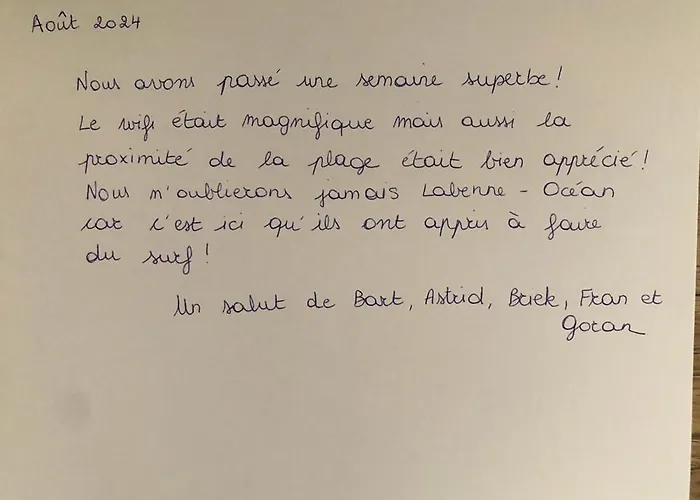 Août 2024
Nous avons passé une semaine superbe!
Le wifi était magnifique mais aussi la
proximité de la plage était bien apprécié!
Nous n'oublierons jamais Labenne - Océan
car c'est ici qu'ils ont appris à faire
du surf!
Un salut de Bart, Astrid, Briek, Fran et
Goran